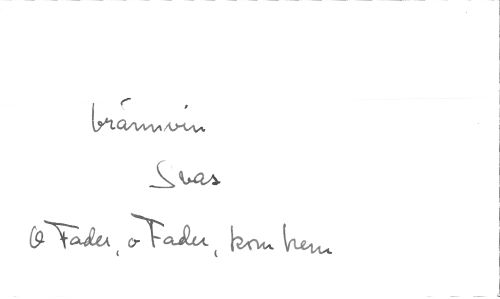 brännvin
Svas
O Fader, o Fader, kom hem